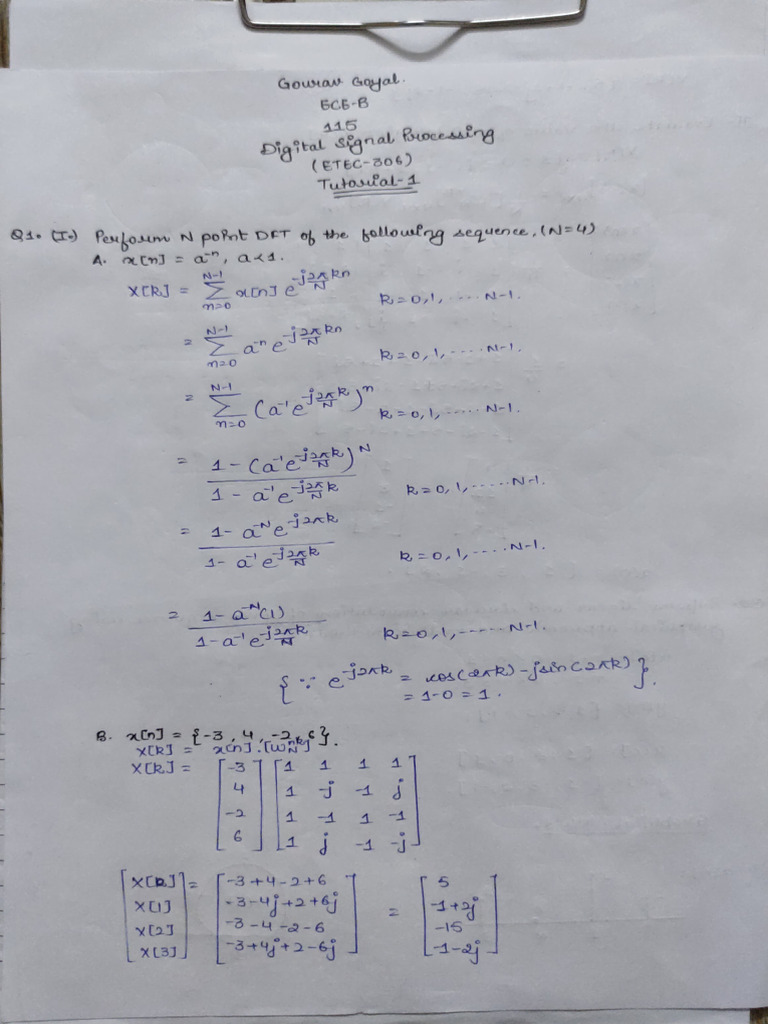 Gourav Goyal.
ECE-B
115
Digital Signal Processing
(ETEC-306)
Tutorial-1
Q1. (I.) Perform N point DFT of the following sequence. (N=4)
A. x[n] = a⁻ⁿ, a<1.
X[k] = Σ_{n=0}^{N-1} x[n] e^{-j2π/N kn} k=0,1,.....N-1.
= Σ_{n=0}^{N-1} a⁻ⁿ e^{-j2π/N kn} k=0,1,.....N-1.
= Σ_{n=0}^{N-1} (a⁻¹e^{-j2π/N k})ⁿ k=0,1,.....N-1.
= (1-(a⁻¹e^{-j2π/N k})^N) / (1-a⁻¹e^{-j2π/N k}) k=0,1,.....N-1.
= (1-a^{-N}e^{-j2πk}) / (1-a⁻¹e^{-j2π/N k}) k=0,1,.....N-1.
= (1-a^{-N}(1)) / (1-a⁻¹e^{-j2π/N k}) k=0,1,.....N-1.
{∵ e^{-j2πk} = cos(2πk)-jsin(2πk)}.
= 1-0 = 1.
B. x[n] = {-3, 4, -2, 6}.
X[k] = x[n].[W_N^{nk}]
X[k] = [-3] [1 1 1 1]
4 1 -j -1 j
-2 1 -1 1 -1
6 1 j -1 -j
[X[0]] = [-3+4-2+6] = [5]
X[1] -3-4j+2+6j -1+2j
X[2] -3-4-2-6 -15
X[3] -3+4j+2-6j -1-2j